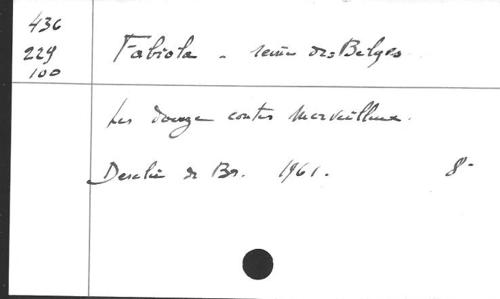 436
229
100
Fabiola - reine des Belges
Les douze contes merveilleux.
Desclée de Br. 1961. 8-